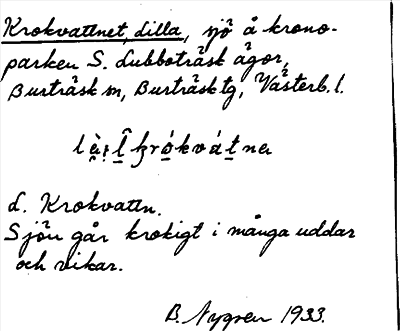 Krokvattnet, Lilla, sjö å krono-
parken S. Lubboträsk ägor,
Burträsk sn, Burträsk tg, Västerb. l.
d. Krokvattn.
Sjön går krokigt i många uddar
och vikar.
B. Nygren 1933.